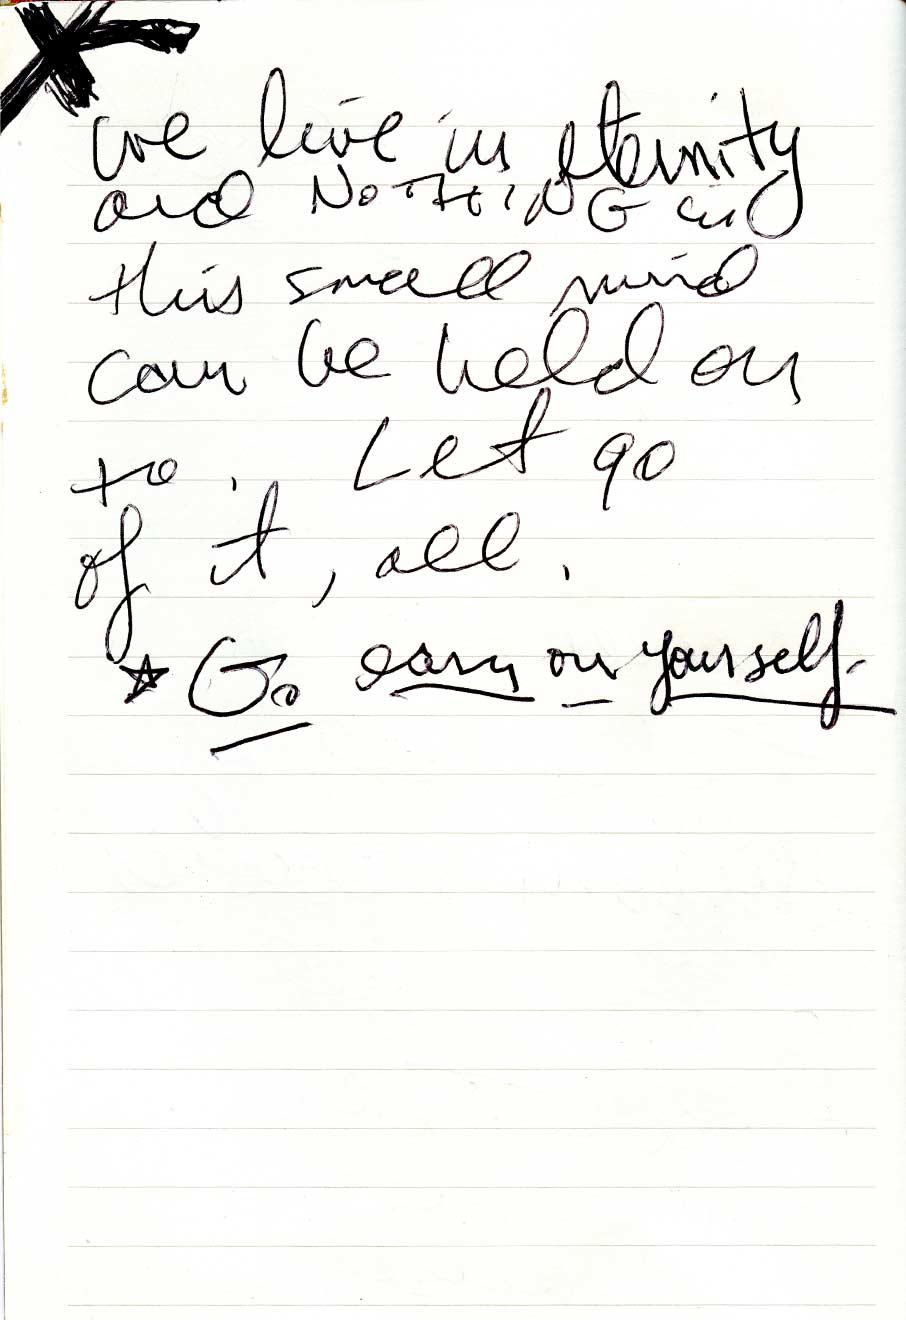 we live in eternity
and NOTHING in
this small mind
can be held on
to. Let go
of it, all.
Go easy on yourself.